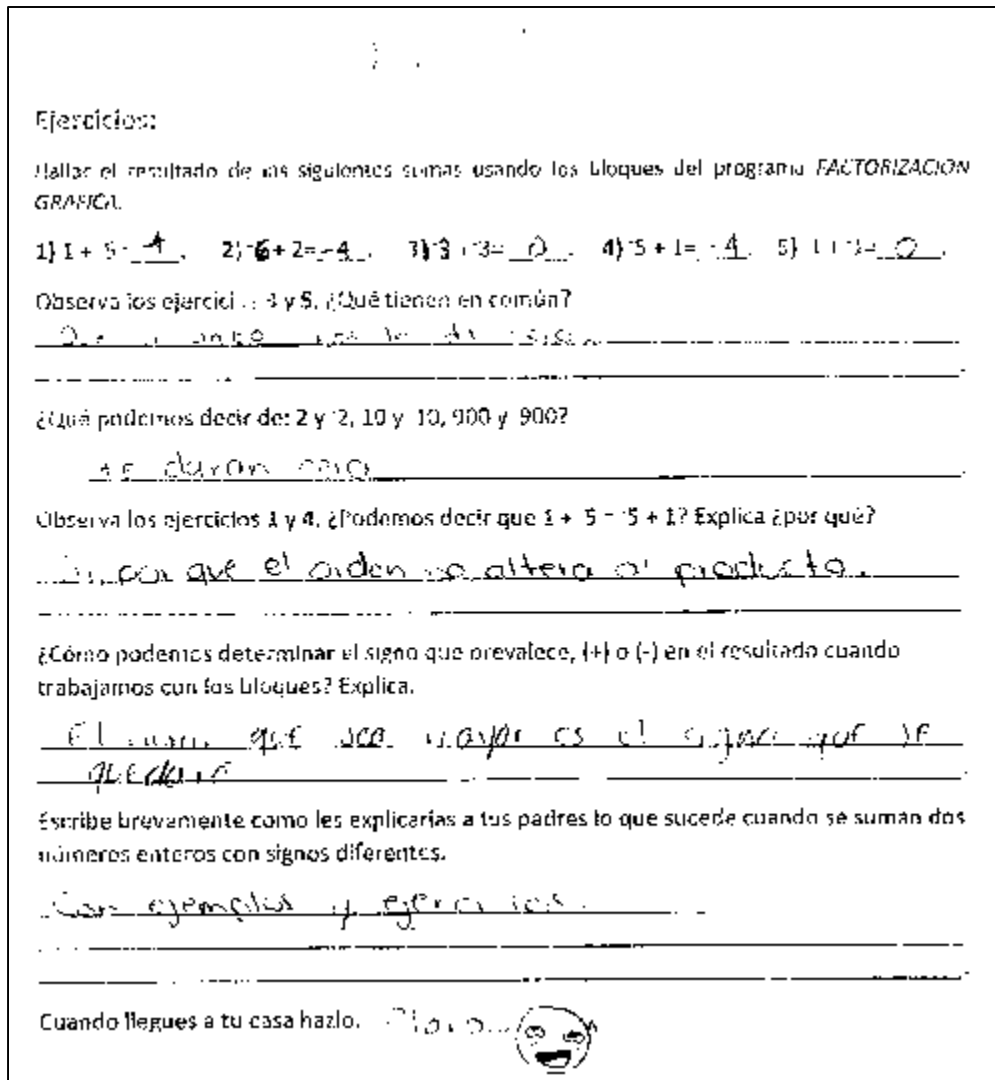 Ejercicios:
Hallar el resultado de las siguientes sumas usando los bloques del programa FACTORIZACION
GRAFICA.
1) 1 + ⁻5 = -4. 2) ⁻6 + 2= -4. 3) ⁻3 + 3= 0. 4) ⁻5 + 1= -4. 5) 1 + ⁻1= 0.
Observa los ejercicios 3 y 5. ¿Qué tienen en común?
¿Qué podemos decir de: 2 y ⁻2, 10 y ⁻10, 900 y ⁻900?
daran cero
Observa los ejercicios 1 y 4. ¿Podemos decir que 1 + ⁻5 = ⁻5 + 1? Explica ¿por qué?
Si, por qué el orden no altera al producto.
¿Cómo podemos determinar el signo que prevalece, (+) o (-) en el resultado cuando
trabajamos con los bloques? Explica.
El que sea mayor es el signo que se
quedara
Escribe brevemente como les explicarías a tus padres lo que sucede cuando se suman dos
números enteros con signos diferentes.
Con ejemplos y ejercicios.
Cuando llegues a tu casa hazlo. Claro...